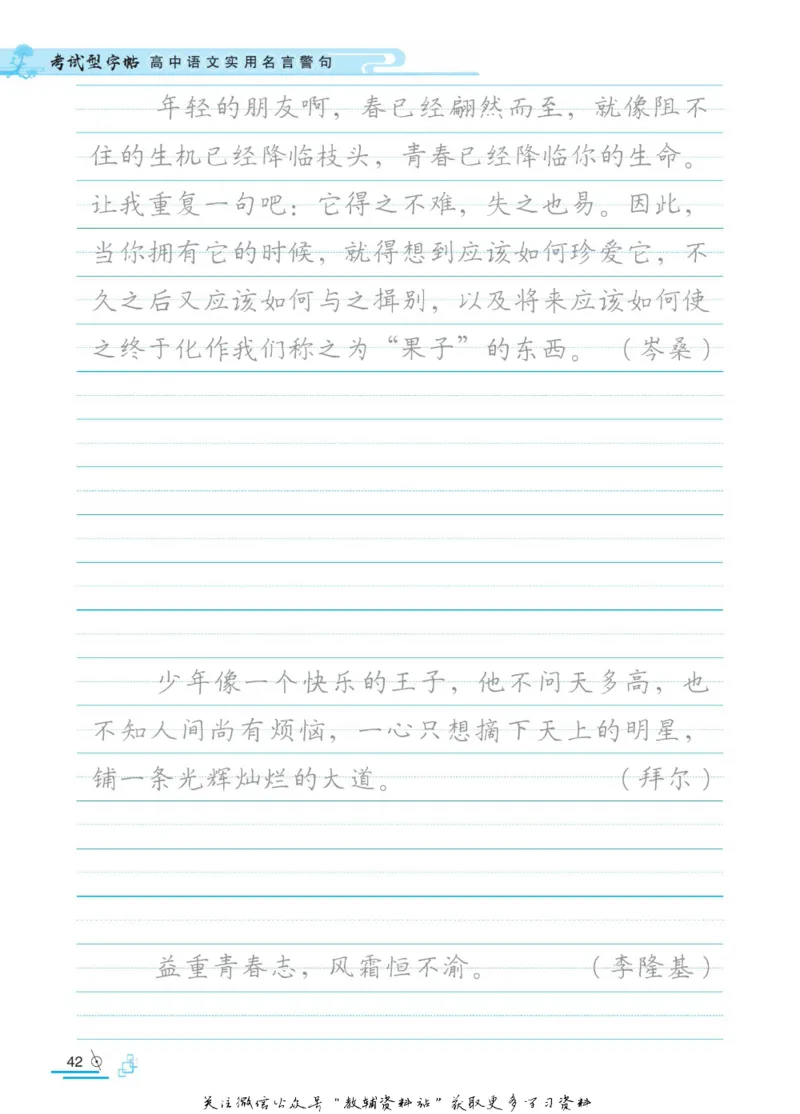 考试型字帖 高中语文实用名言警句
年轻的朋友啊，春已经翩然而至，就像阻不
住的生机已经降临枝头，青春已经降临你的生命。
让我重复一句吧：它得之不难，失之也易。因此，
当你拥有它的时候，就得想到应该如何珍爱它，不
久之后又应该如何与之揖别，以及将来应该如何使
之终于化作我们称之为“果子”的东西。（岑桑）
少年像一个快乐的王子，他不问天多高，也
不知人间尚有烦恼，一心只想摘下天上的明星，
铺一条光辉灿烂的大道。（拜尔）
益重青春志，风霜恒不渝。（李隆基）
42
关注微信公众号“教辅资料站”获取更多学习资料